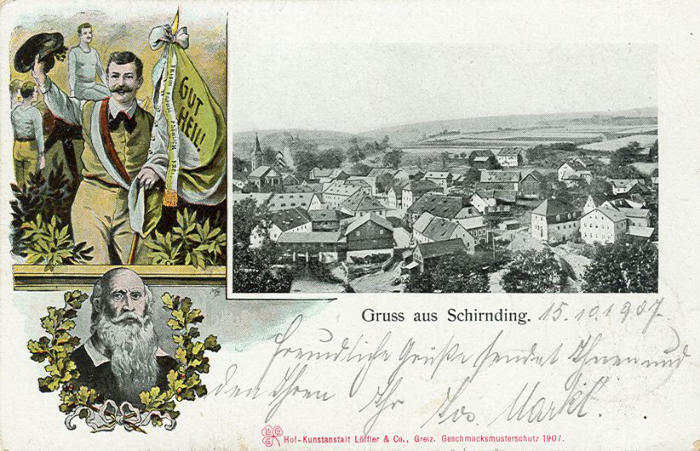 GUT
HEIL!
Gruss aus Schirnding. 15.10.1907.
Freundliche Grüße sendet Ihnen und
den Ihren Ihr Jos. Markl.
Hof-Kunstanstalt Löffler & Co., Greiz. Geschmacksmusterschutz 1901.